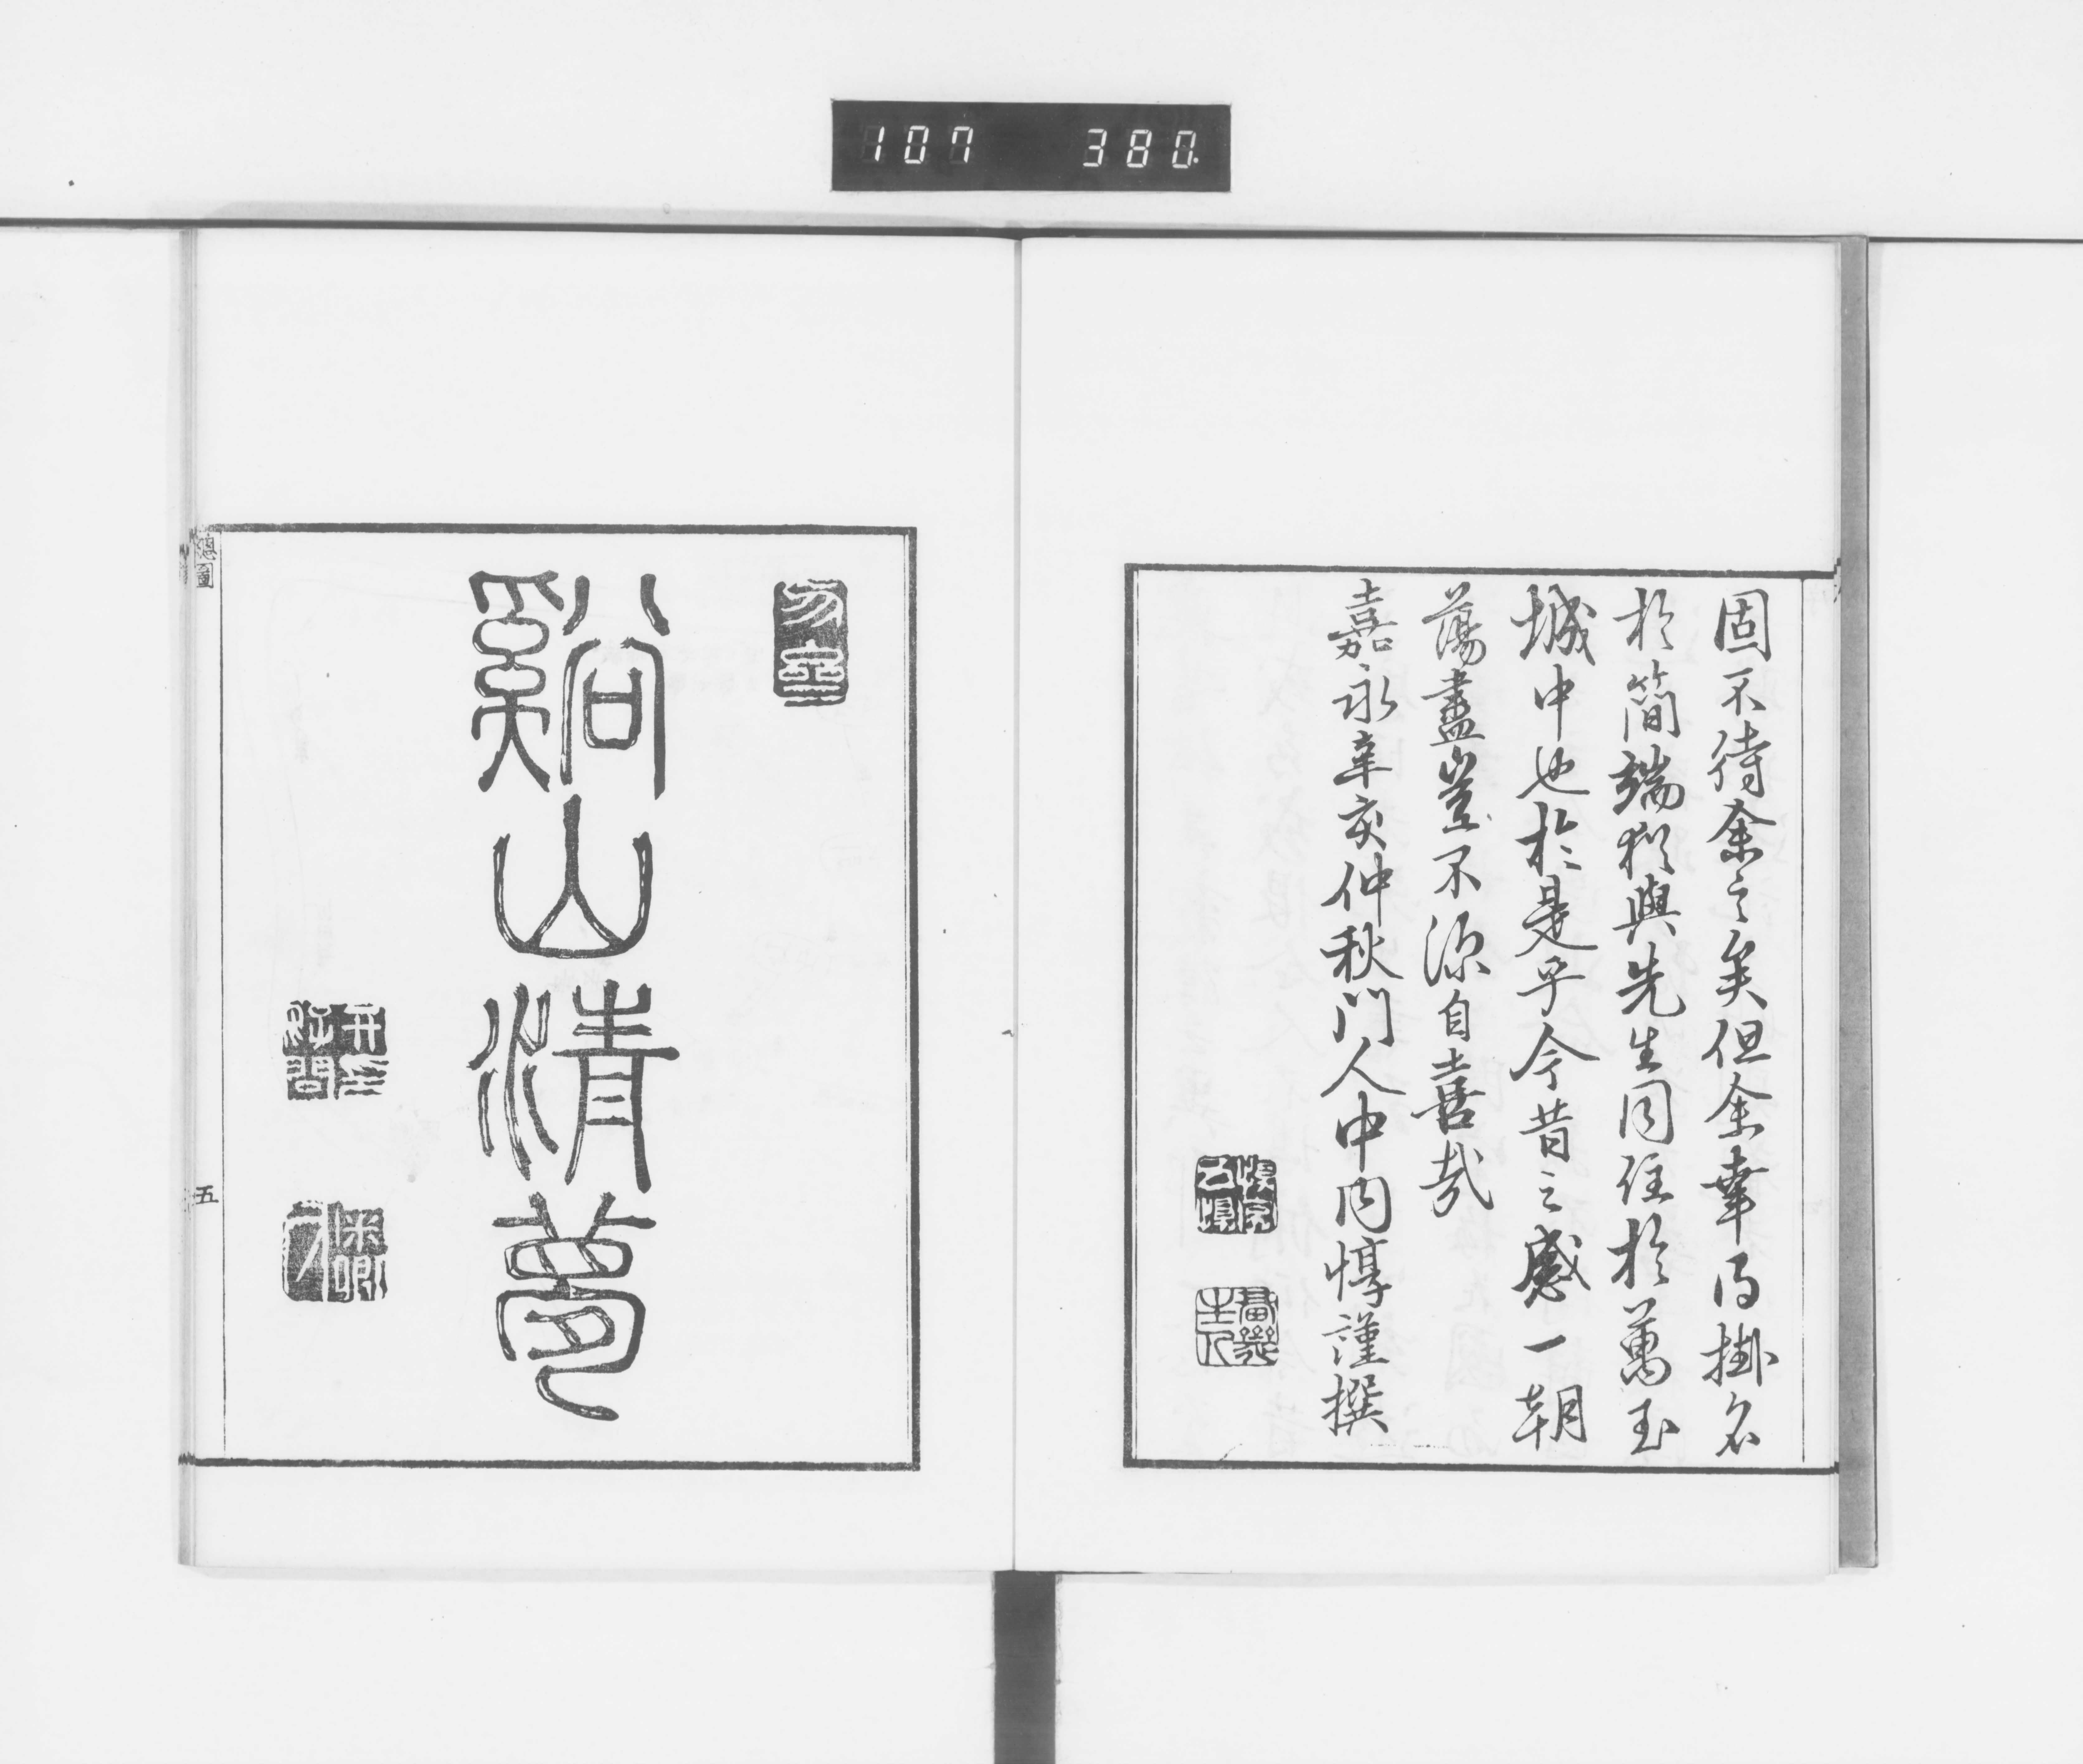 107 380
固不待余之矣但余幸得掛名
於簡端猶與先生同住於萬玉
城中也於是乎今昔之感一朝
蕩盡豈不深自喜哉
嘉永辛亥仲秋門人中内惇謹撰
谿山清夢
總圖
五